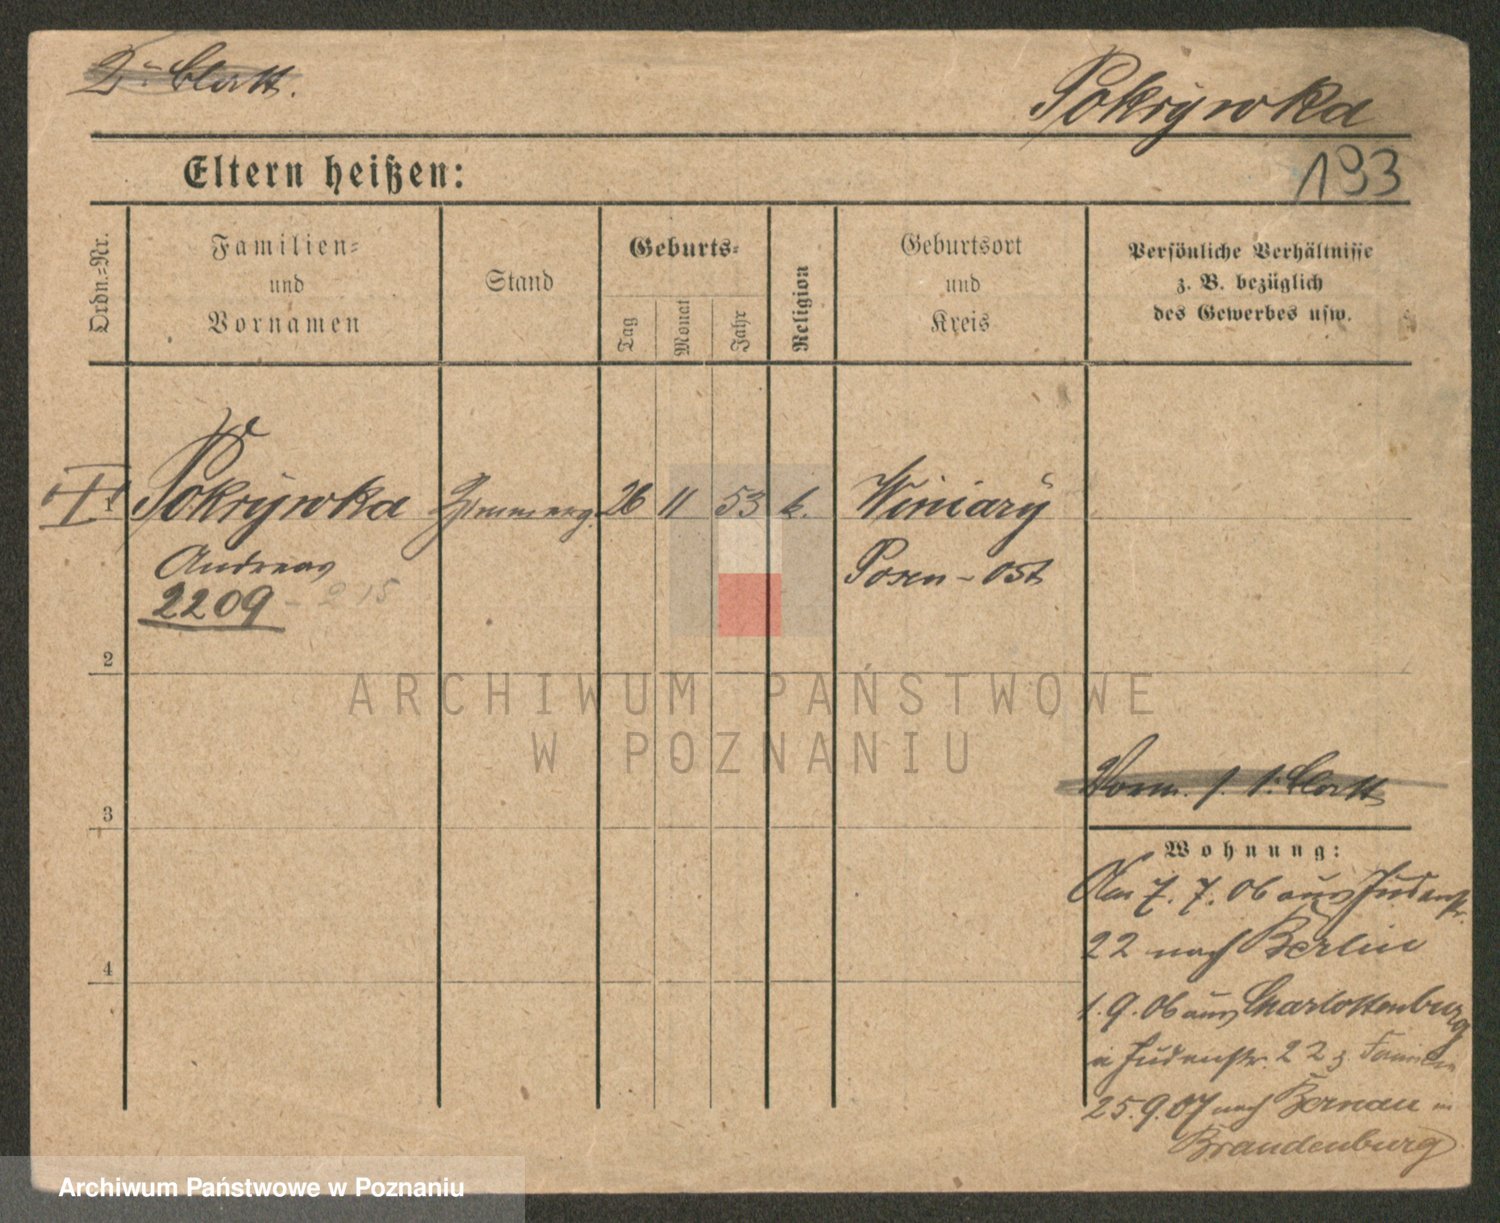 2. Blatt.
Pokrywka
193
Eltern heißen:
Ordn.=Nr.
Familien=
und
Vornamen
Stand
Geburts=
Tag
Monat
Jahr
Religion
Geburtsort
und
Kreis
Persönliche Verhältnisse
z. B. bezüglich
des Gewerbes usw.
1 Pokrywka Zimmerg. 26 11 53 k. Winiary
Andreas Posen-Ost
2209 - 215
2
3
4
Vorm. s. 1. Blatt
Wohnung:
Am 7. 7. 06 aus Judenstr.
22 nach Berlin
1. 9. 06 aus Charlottenburg
n Judenstr. 22 z. Familie
25. 9. 07 nach Bernau in
Brandenburg
ARCHIWUM PAŃSTWOWE
W POZNANIU
Archiwum Państwowe w Poznaniu